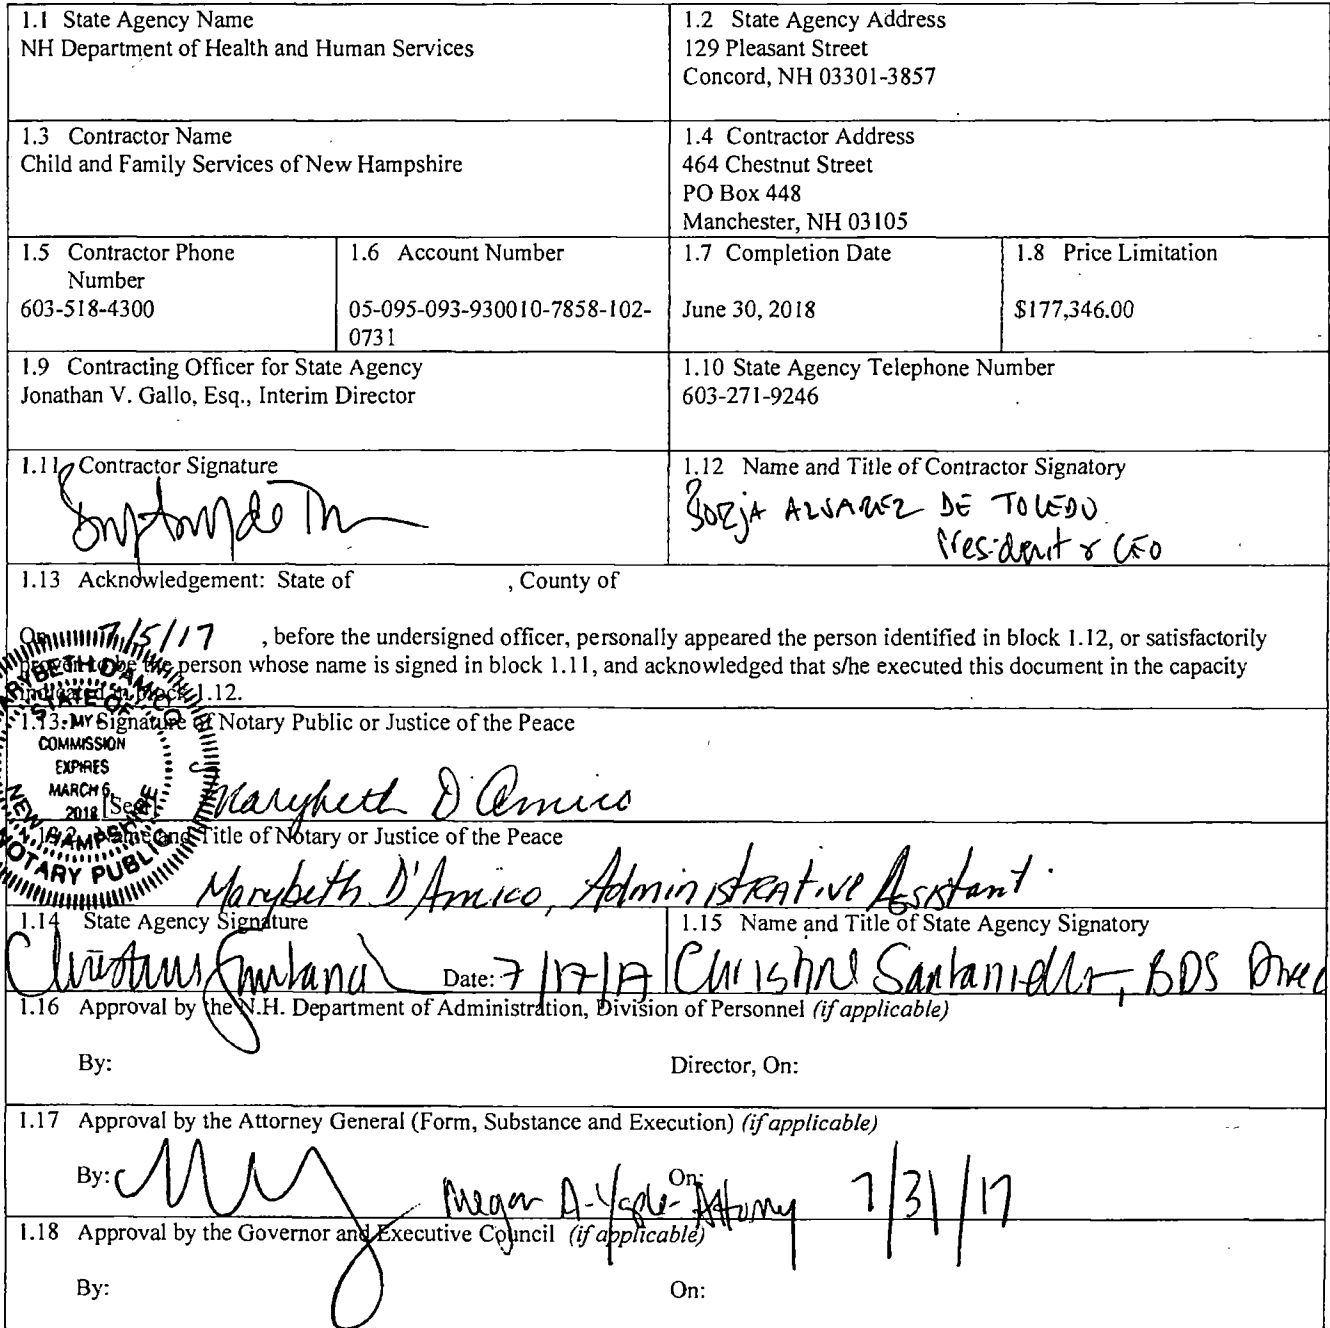 1.1 State Agency Name
NH Department of Health and Human Services
1.2 State Agency Address
129 Pleasant Street
Concord, NH 03301-3857
1.3 Contractor Name
Child and Family Services of New Hampshire
1.4 Contractor Address
464 Chestnut Street
PO Box 448
Manchester, NH 03105
1.5 Contractor Phone
Number
603-518-4300
1.6 Account Number
05-095-093-930010-7858-102-
0731
1.7 Completion Date
June 30, 2018
1.8 Price Limitation
$177,346.00
1.9 Contracting Officer for State Agency
Jonathan V. Gallo, Esq., Interim Director
1.10 State Agency Telephone Number
603-271-9246
1.11 Contractor Signature
1.12 Name and Title of Contractor Signatory
BORJA ALVAREZ DE TOLEDO
President & CEO
1.13 Acknowledgement: State of , County of
On 7/5/17 , before the undersigned officer, personally appeared the person identified in block 1.12, or satisfactorily
proven to be the person whose name is signed in block 1.11, and acknowledged that s/he executed this document in the capacity
indicated in block 1.12.
MARYBETH D'AMICO
STATE OF
NEW HAMPSHIRE
NOTARY PUBLIC
MY
COMMISSION
EXPIRES
MARCH 6,
2018
Signature of Notary Public or Justice of the Peace
[Seal]
Marybeth D'Amico
1.13.2 Name and Title of Notary or Justice of the Peace
Marybeth D'Amico, Administrative Assistant
1.14 State Agency Signature
Date: 7/17/17
1.15 Name and Title of State Agency Signatory
Christine Santaniello, BDS Direc
1.16 Approval by the N.H. Department of Administration, Division of Personnel (if applicable)
By: Director, On:
1.17 Approval by the Attorney General (Form, Substance and Execution) (if applicable)
By: On:
Megan A. Yaple - Attorney 7/31/17
1.18 Approval by the Governor and Executive Council (if applicable)
By: On: